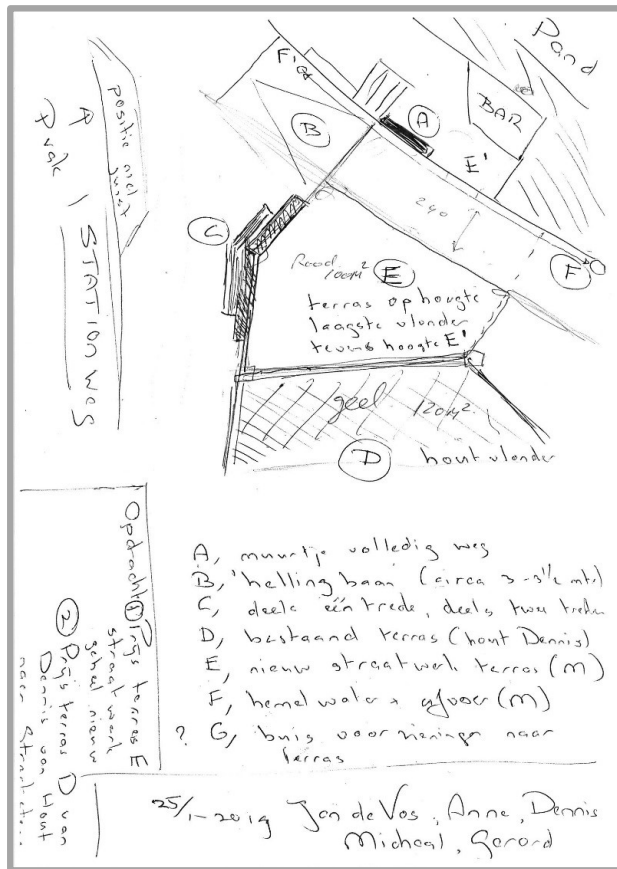 Pand
BAR
F'
A
B
E'
240
C
F
Rood
100m²
E
terras op hoogte
laagste vlonder
tevens hoogte E'
geel 120m².
D
hout vlonder
positie niet juist
P vak
STATION WEG
A, muurtje volledig weg
B, hellingbaan (circa 3 - 3½ mtr)
C, deels één trede, deels twee treden
D, bestaand terras (hout Dennis)
E, nieuw straatwerk terras (M)
F, hemelwater + afvoer (M)
? G, buis voorzieningen naar
terras
Opdracht
① Prijs terras E
straatwerk
geheel nieuw
② Prijs terras D van
Dennis van Hout
naar
25/1-2019 Jan de Vos, Anne, Dennis
Micheal, Gerard